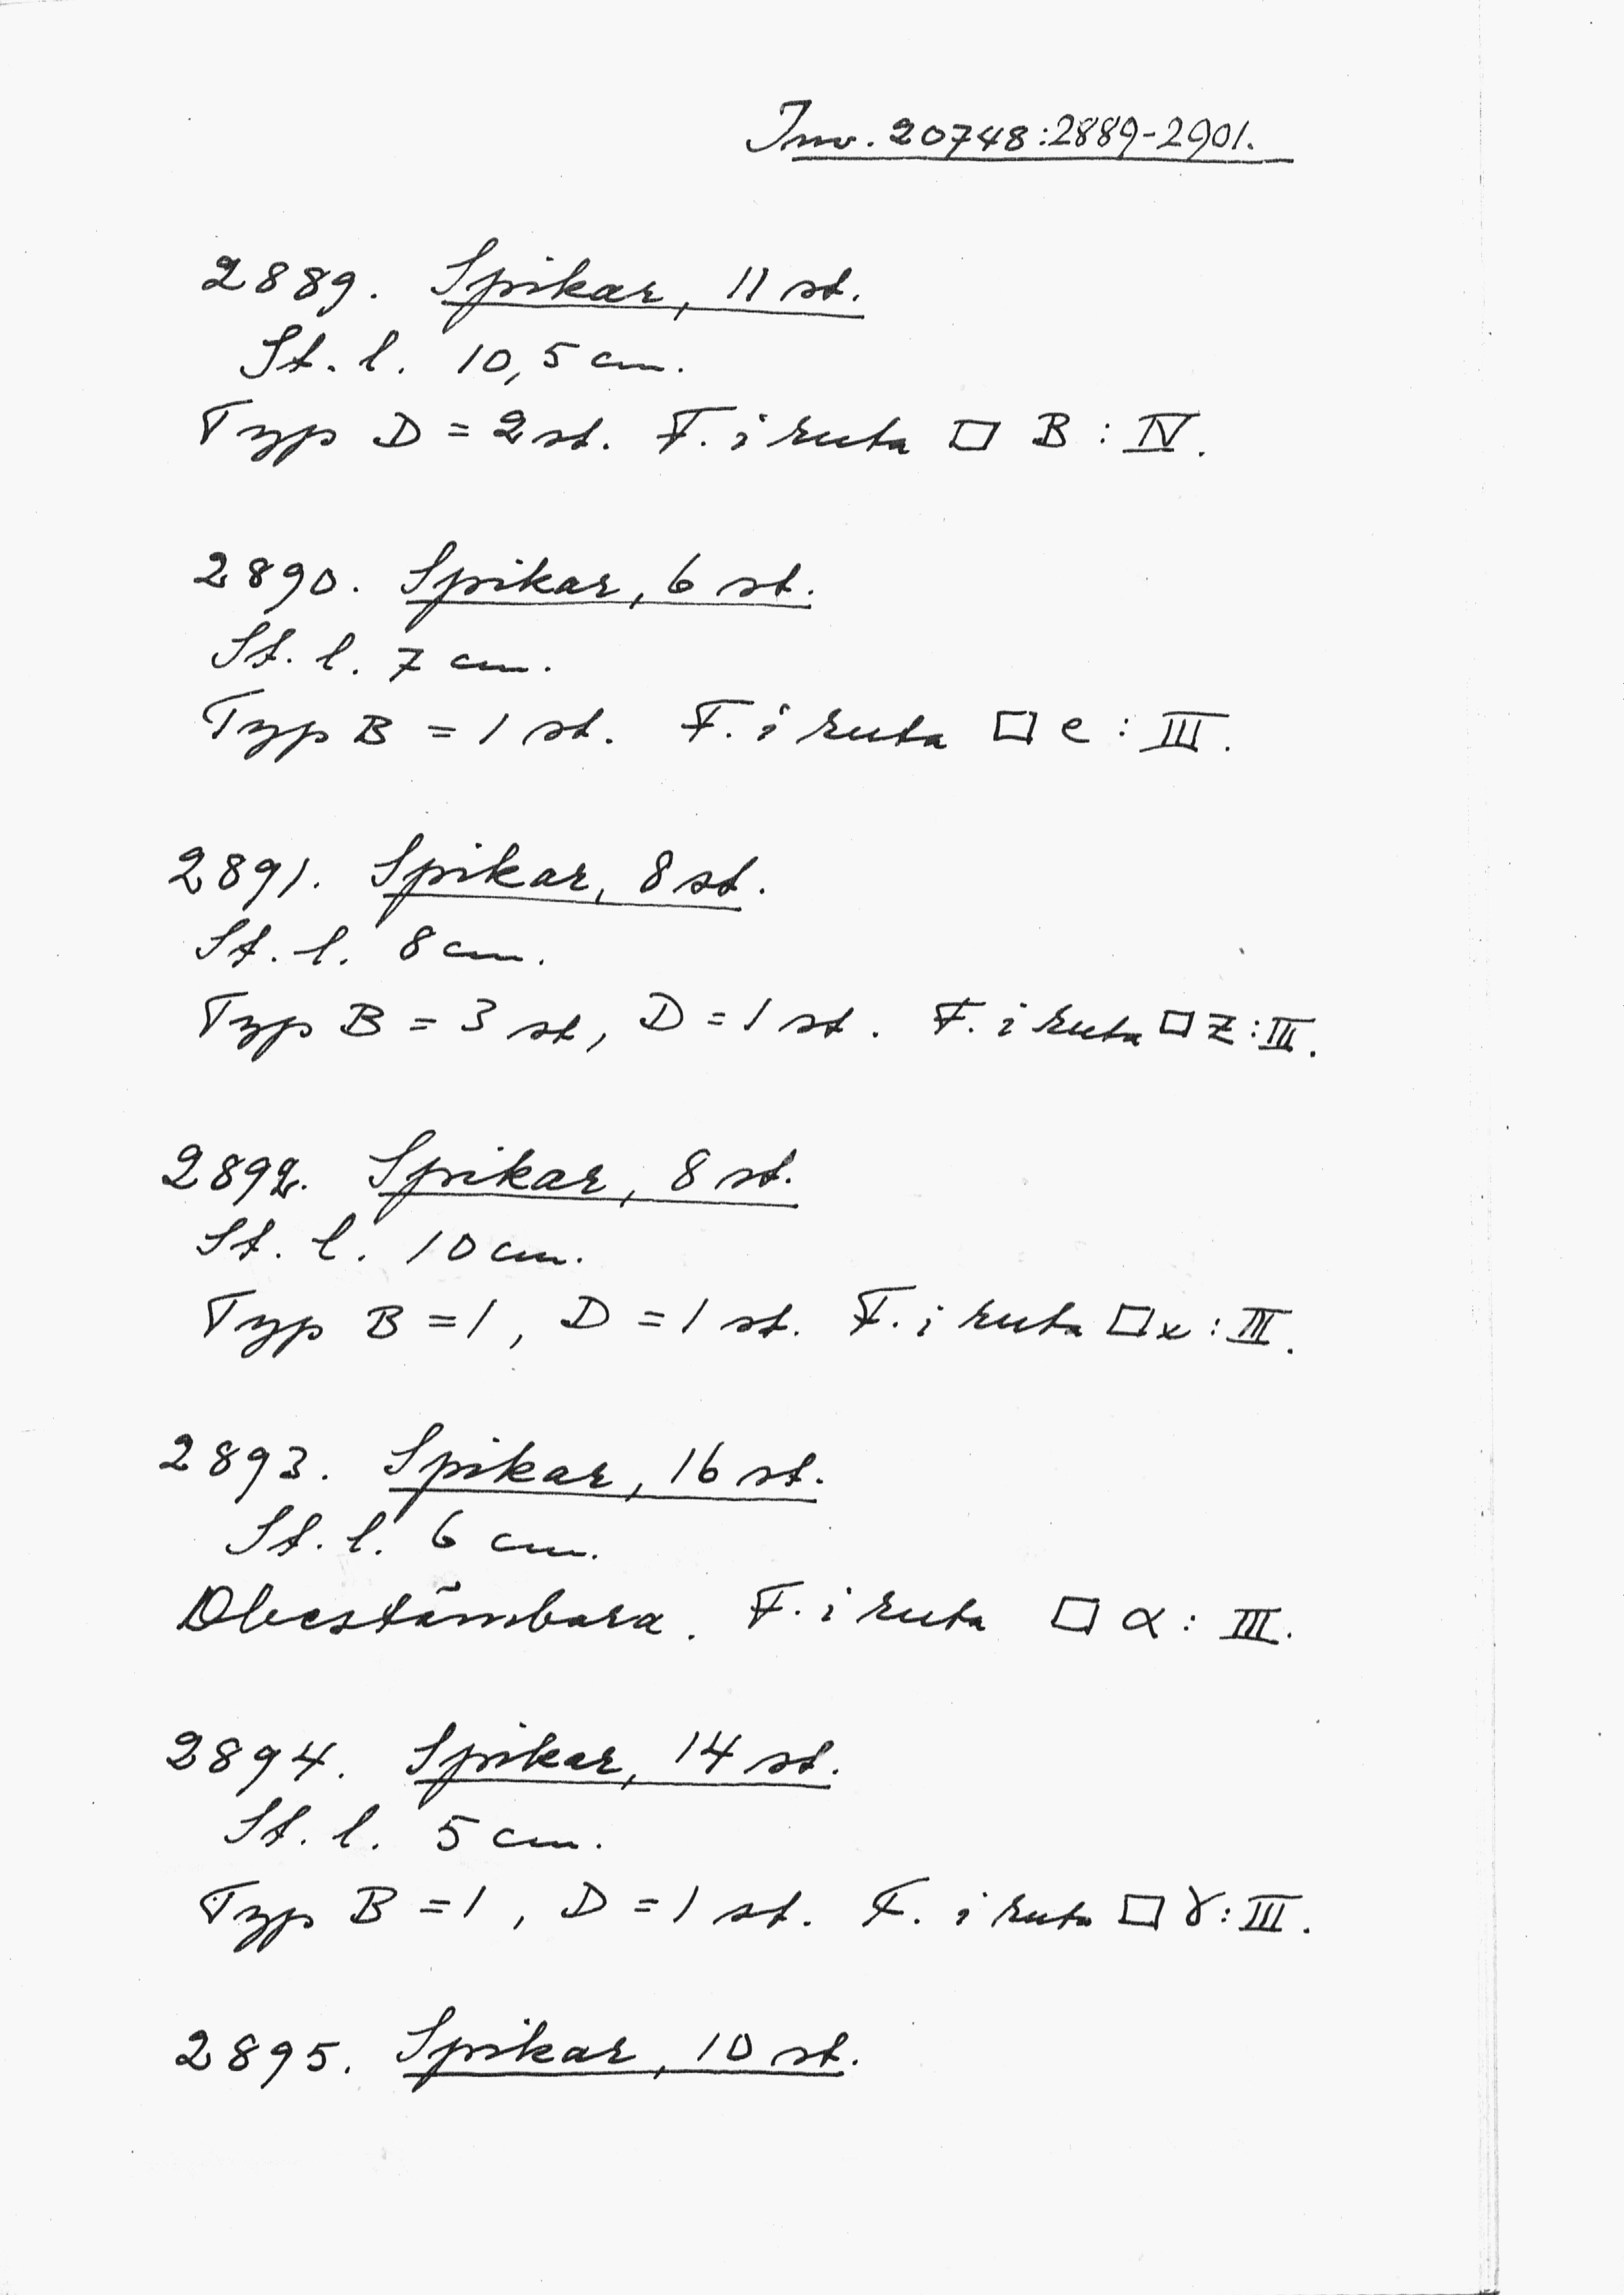 Inv. 20748:2889-2901.
2889. Spikar, 11 st.
St. l. 10,5 cm.
Typ D = 2 st. F. i ruta □ B : IV.
2890. Spikar, 6 st.
St. l. 7 cm.
Typ B = 1 st. F. i ruta □ e : III.
2891. Spikar, 8 st.
St. l. 8 cm.
Typ B = 3 st, D = 1 st. F. i ruta □ z : III.
2892. Spikar, 8 st.
St. l. 10 cm.
Typ B = 1, D = 1 st. F. i ruta □ x : III.
2893. Spikar, 16 st.
St. l. 6 cm.
Obestämbara. F. i ruta □ α : III.
2894. Spikar, 14 st.
St. l. 5 cm.
Typ B = 1, D = 1 st. F. i ruta □ γ : III.
2895. Spikar, 10 st.